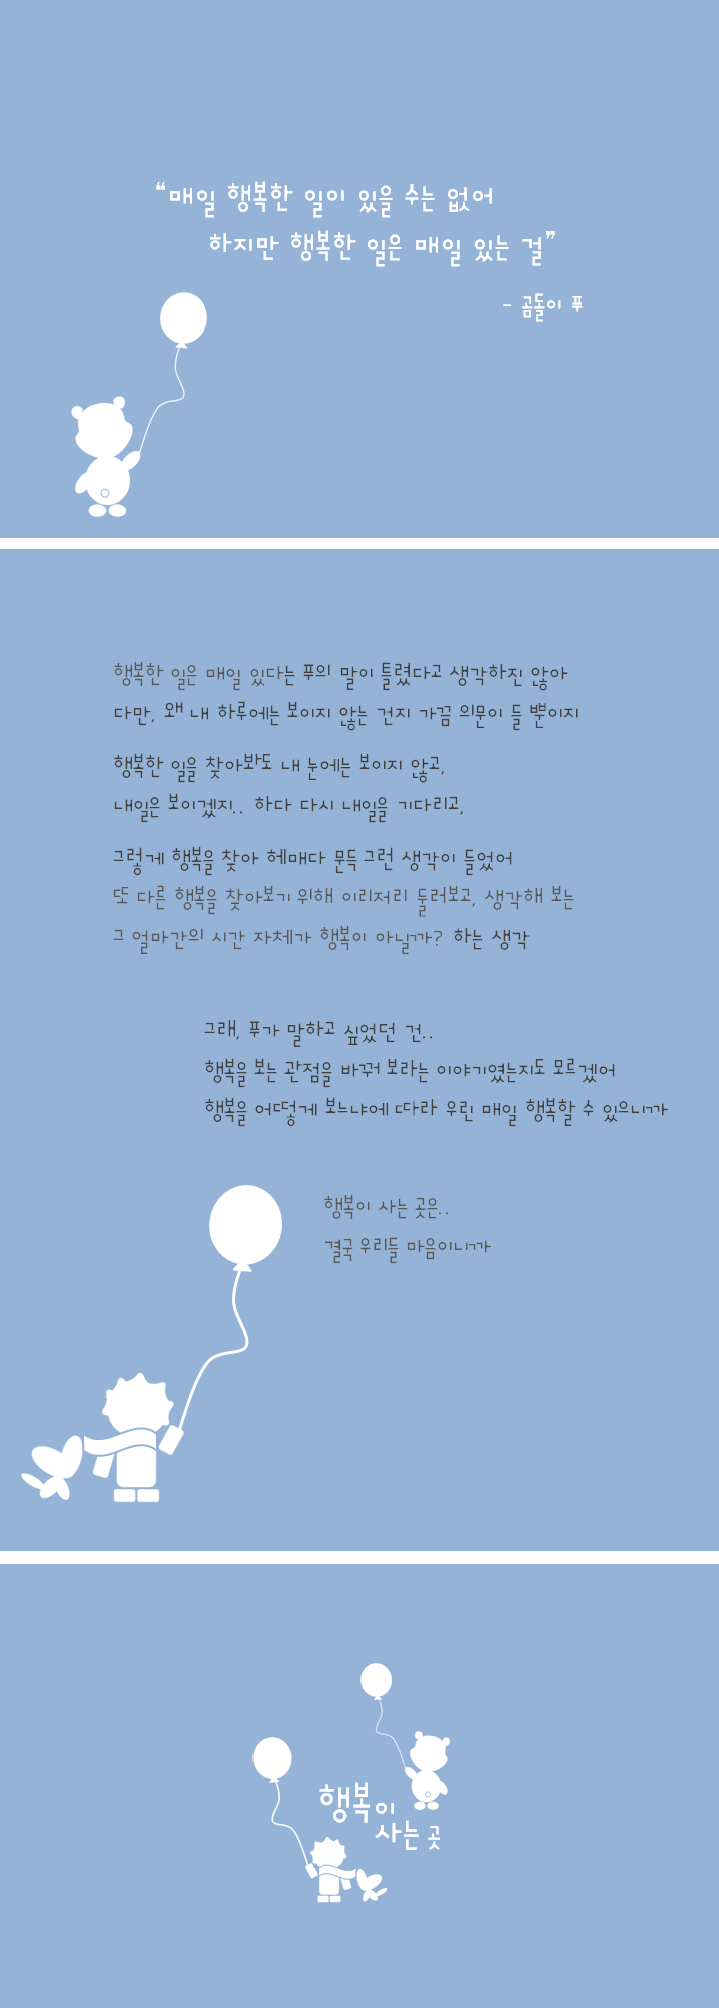 “매일 행복한 일이 있을 수는 없어
하지만 행복한 일은 매일 있는 걸”
- 곰돌이 푸
행복한 일은 매일 있다는 푸의 말이 틀렸다고 생각하진 않아
다만, 왜 내 하루에는 보이지 않는 건지 가끔 의문이 들 뿐이지
행복한 일을 찾아봐도 내 눈에는 보이지 않고,
내일은 보이겠지.. 하다 다시 내일을 기다리고,
그렇게 행복을 찾아 헤매다 문득 그런 생각이 들었어
또 다른 행복을 찾아보기 위해 이리저리 둘러보고, 생각해 보는
그 얼마간의 시간 자체가 행복이 아닐까? 하는 생각
그래, 푸가 말하고 싶었던 건..
행복을 보는 관점을 바꿔 보라는 이야기였는지도 모르겠어
행복을 어떻게 보느냐에 따라 우린 매일 행복할 수 있으니까
행복이 사는 곳은..
결국 우리들 마음이니까
행복이
사는 곳